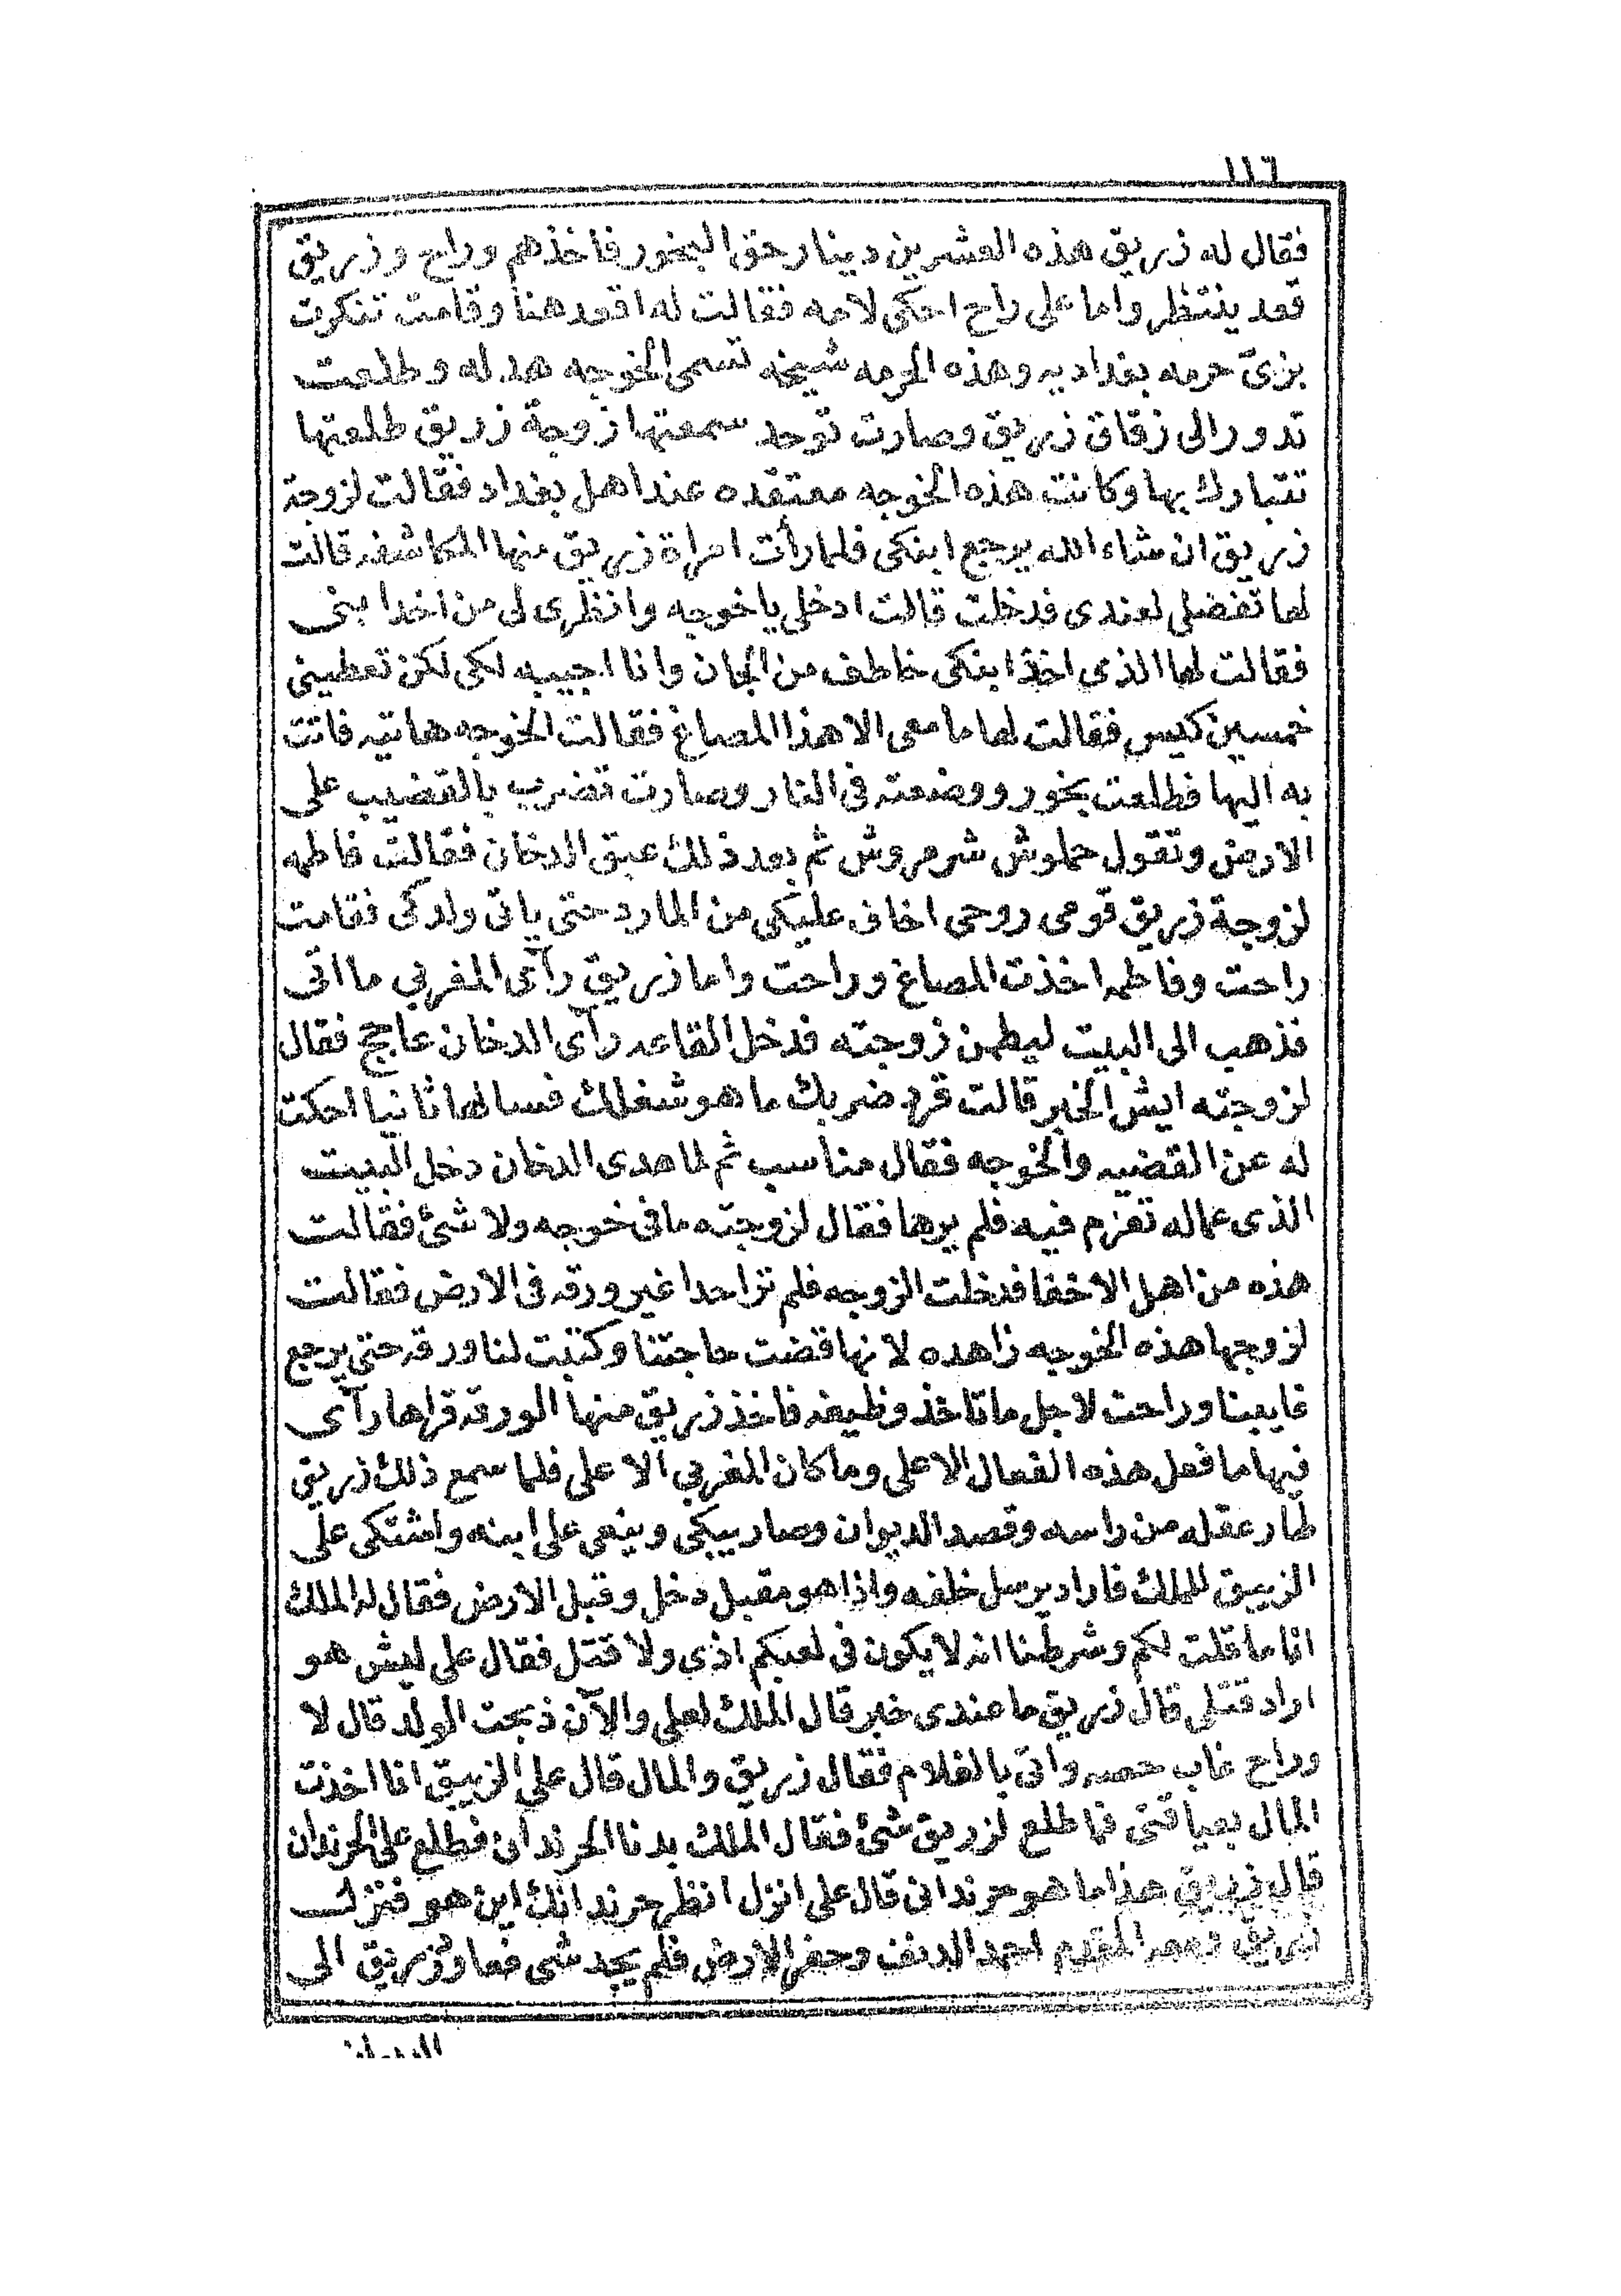 ١١٦
فقال له زريق هذه العشرين دينار حق البخور فاخذهم وراح وزريق
قعد ينتظر واما على راح احكى لامه فقالت له اقعد هنا وقامت تنكرت
بزى حرمه بغداديه وهذه الحرمه شيخه تسمى الخوجه هدله وطلعت
تدور الى زقاق زريق وصارت توحد سمعتها زوجة زريق طلعتها
تتبارك بها وكانت هذه الخوجه معتقده عند اهل بغداد فقالت لزوجة
زريق ان شاء الله يرجع ابنكى فلما رأت امراة زريق منها المكاشفه قالت
لها تفضلى لعندى فدخلت قالت ادخلى يا خوجه وانظرى لى من اخد ابنى
فقالت لها الذى اخذ ابنكى خاطف من الجان وانا اجيبه لكى لكن تعطينى
خمسين كيس فقالت لها ما معى الا هذا المصاغ فقالت الخوجه هاتيه فاتت
به اليها فطلعت بخور ووضعته فى النار وصارت تضرب بالقضيب على
الارض وتقول حملوش شرمروش ثم بعد ذلك عبق الدخان فقالت فاطمه
لزوجة زريق قومى روحى اخاف عليكى من المارد حتى ياتى ولدكى فقامت
راحت وفاطمه اخذت المصاغ وراحت واما زريق رآى المغربي ما اتى
فذهب الى البيت ليطمن زوجته فدخل القاعه رآى الدخان عاجج فقال
لزوجته ايش الخبر قالت قرد ضربك ما هو شغلك فسالها ثانيا احكت
له عن القضيه والخوجه فقال مناسب ثم لما هدى الدخان دخل البيت
الذى عماله تعزم فيه فلم يرها فقال لزوجته ما فى خوجه ولا شئ فقالت
هذه من اهل الاخفا فدخلت الزوجه فلم ترا احدا غير ورقه فى الارض فقالت
لزوجها هذه الخوجه زاهده لانها قضت حاجتنا وكتبت لنا ورقه حتى يرجع
غايبنا وراحت لاجل ما تاخذ وظيفه فاخذ زريق منها الورقه قراها رآى
فيها ما فعل هذه الفعال الا على وما كان المغربي الا على فلما سمع ذلك زريق
طار عقله من راسه وقصد الديوان وصار يبكى وينعى على ابنه واشتكى على
الزيبق للملك فاراد يرسل خلفه واذا هو مقبل دخل وقبل الارض فقال له الملك
انا ما قلت لكم وشرطنا انه لا يكون فى لعبكم اذى ولا قتل فقال على ليش هو
اراد قتلى قال زريق ما عندى خبر قال الملك لعلى والآن ذبحت الولد قال لا
وراح غاب حصه واتى بالغلام فقال زريق والمال قال على الزيبق انا اخذت
المال بعياقتى فما طلع لزريق شئ فقال الملك بدنا الحرندان فطلع على الحرندان
قال زريق هذا ما هو حرندانى قال على انزل انظر حرندانك اين هو فنزل
زريق ومعه المقدم احمد الدنف وحفر الارض فلم يجد شى فعاد زريق الى